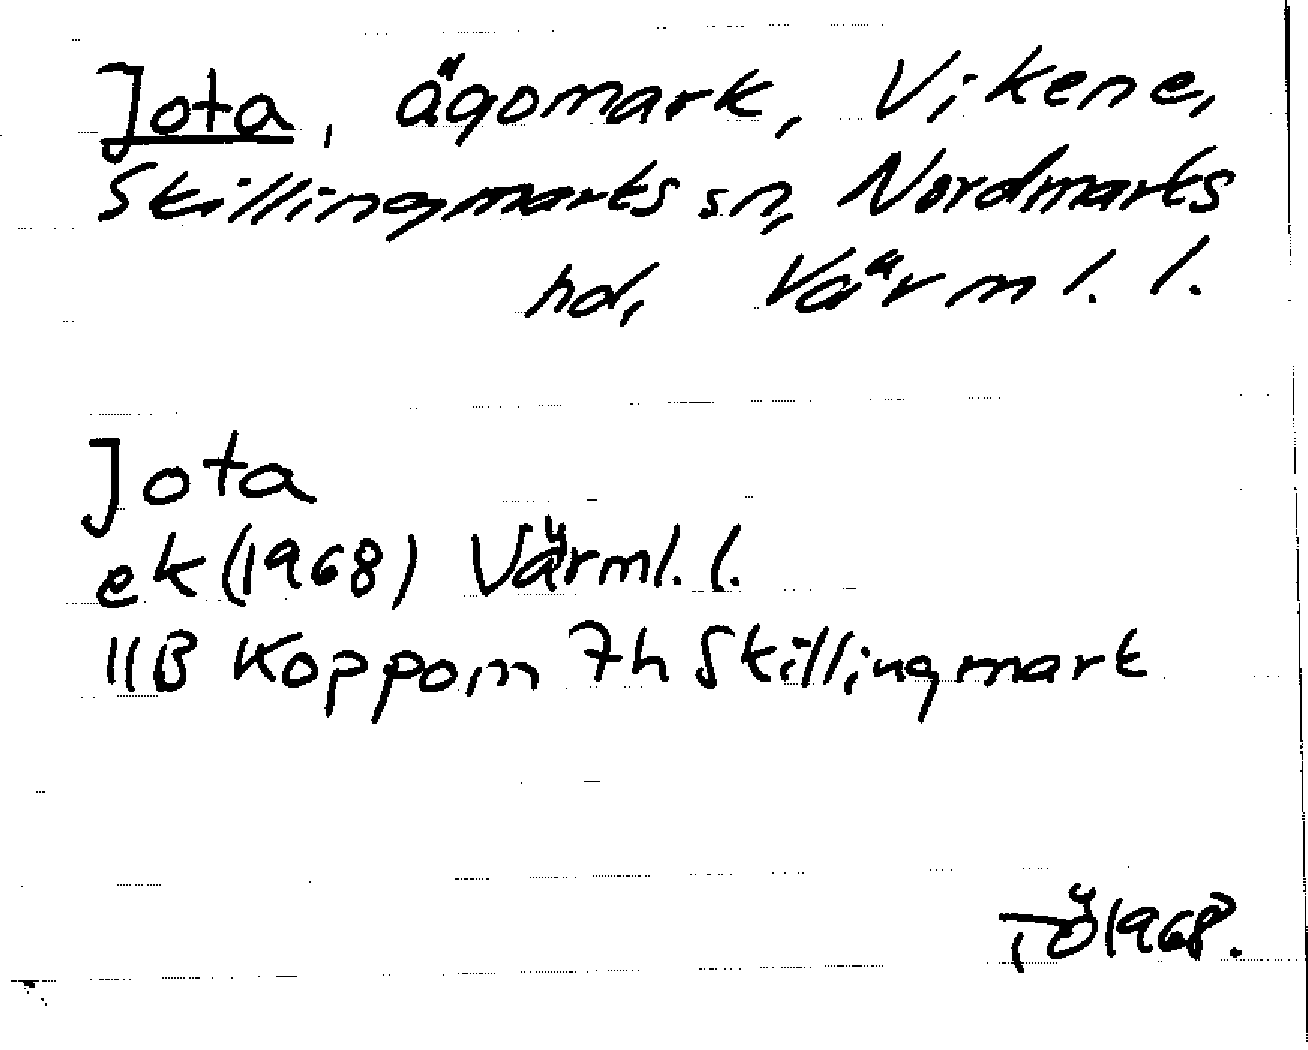 Jota, ägomark, Vikene,
Skillingmarks sn, Nordmarks
hd, Värml. l.
Jota
ek (1968) Värml. l.
11B Koppom 7h Skillingmark
TÖ 1968.